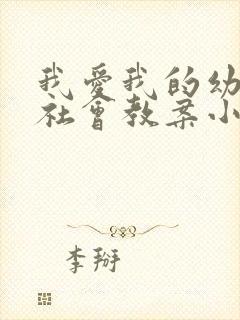 我愛我的幼
社會教案小
李掰